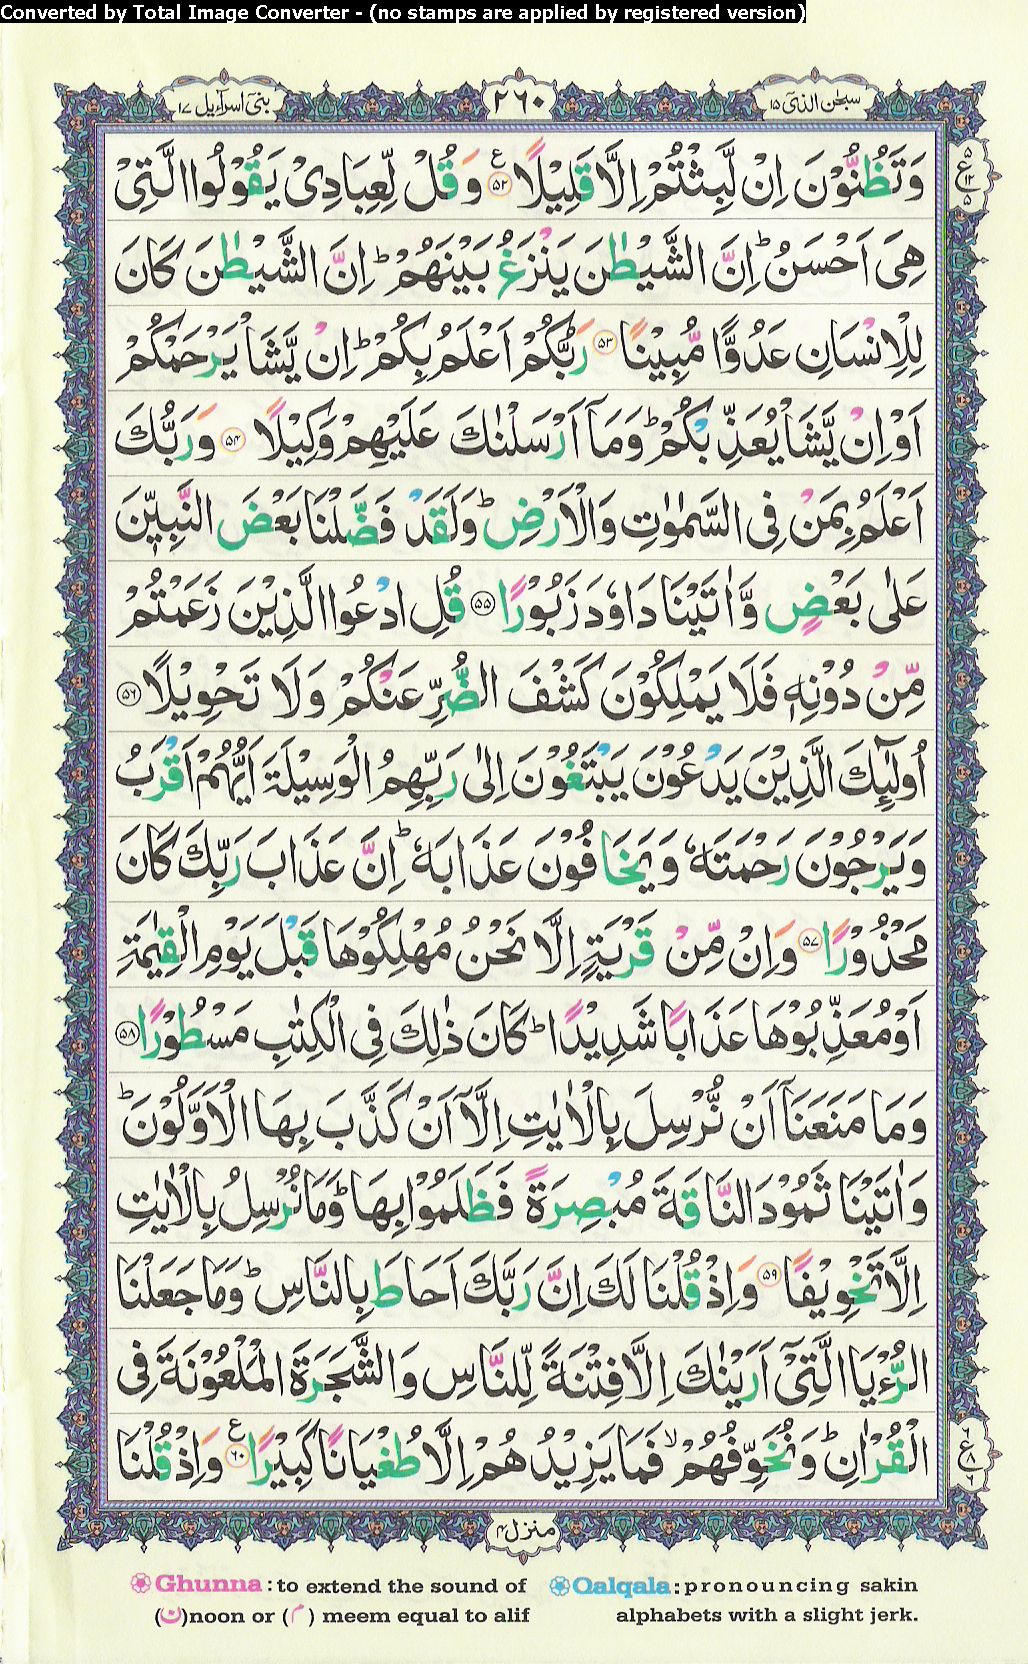 Converted by Total Image Converter - (no stamps are applied by registered version)
سبحٰن الذیٓ ۱۵
۲۶۰
بنیٓ اسرآءیل ۱۷
وَتَظُنُّوْنَ اِنْ لَّبِثْتُمْ اِلَّا قَلِیْلًا ۵۲ ع وَقُلْ لِّعِبَادِیْ یَقُوْلُوا الَّتِیْ
ع ۵ ۱۲ ۵
هِیَ اَحْسَنُ ؕ اِنَّ الشَّیْطٰنَ یَنْزَغُ بَیْنَهُمْ ؕ اِنَّ الشَّیْطٰنَ كَانَ
لِلْاِنْسَانِ عَدُوًّا مُّبِیْنًا ۵۳ رَبُّكُمْ اَعْلَمُ بِكُمْ ؕ اِنْ یَّشَاْ یَرْحَمْكُمْ
اَوْ اِنْ یَّشَاْ یُعَذِّبْكُمْ ؕ وَمَاۤ اَرْسَلْنٰكَ عَلَیْهِمْ وَكِیْلًا ۵۴ وَرَبُّكَ
اَعْلَمُ بِمَنْ فِی السَّمٰوٰتِ وَالْاَرْضِ ؕ وَلَقَدْ فَضَّلْنَا بَعْضَ النَّبِیّٖنَ
عَلٰی بَعْضٍ وَّاٰتَیْنَا دَاوٗدَ زَبُوْرًا ۵۵ قُلِ ادْعُوا الَّذِیْنَ زَعَمْتُمْ
مِّنْ دُوْنِهٖ فَلَا یَمْلِكُوْنَ كَشْفَ الضُّرِّ عَنْكُمْ وَلَا تَحْوِیْلًا ۵۶
اُولٰٓئِكَ الَّذِیْنَ یَدْعُوْنَ یَبْتَغُوْنَ اِلٰی رَبِّهِمُ الْوَسِیْلَةَ اَیُّهُمْ اَقْرَبُ
وَیَرْجُوْنَ رَحْمَتَهٗ وَیَخَافُوْنَ عَذَابَهٗ ؕ اِنَّ عَذَابَ رَبِّكَ كَانَ
مَحْذُوْرًا ۵۷ وَاِنْ مِّنْ قَرْیَةٍ اِلَّا نَحْنُ مُهْلِكُوْهَا قَبْلَ یَوْمِ الْقِیٰمَةِ
اَوْ مُعَذِّبُوْهَا عَذَابًا شَدِیْدًا ؕ كَانَ ذٰلِكَ فِی الْكِتٰبِ مَسْطُوْرًا ۵۸
وَمَا مَنَعَنَاۤ اَنْ نُّرْسِلَ بِالْاٰیٰتِ اِلَّاۤ اَنْ كَذَّبَ بِهَا الْاَوَّلُوْنَ ؕ
وَاٰتَیْنَا ثَمُوْدَ النَّاقَةَ مُبْصِرَةً فَظَلَمُوْا بِهَا ؕ وَمَا نُرْسِلُ بِالْاٰیٰتِ
اِلَّا تَخْوِیْفًا ۵۹ وَاِذْ قُلْنَا لَكَ اِنَّ رَبَّكَ اَحَاطَ بِالنَّاسِ ؕ وَمَا جَعَلْنَا
الرُّءْیَا الَّتِیْۤ اَرَیْنٰكَ اِلَّا فِتْنَةً لِّلنَّاسِ وَالشَّجَرَةَ الْمَلْعُوْنَةَ فِی
الْقُرْاٰنِ ؕ وَنُخَوِّفُهُمْ ۙ فَمَا یَزِیْدُهُمْ اِلَّا طُغْیَانًا كَبِیْرًا ۶۰ ع وَاِذْ قُلْنَا
ع ۶ ۸ ۶
منزل ۴
Ghunna: to extend the sound of
(ن)noon or (م) meem equal to alif
Qalqala: pronouncing sakin
alphabets with a slight jerk.